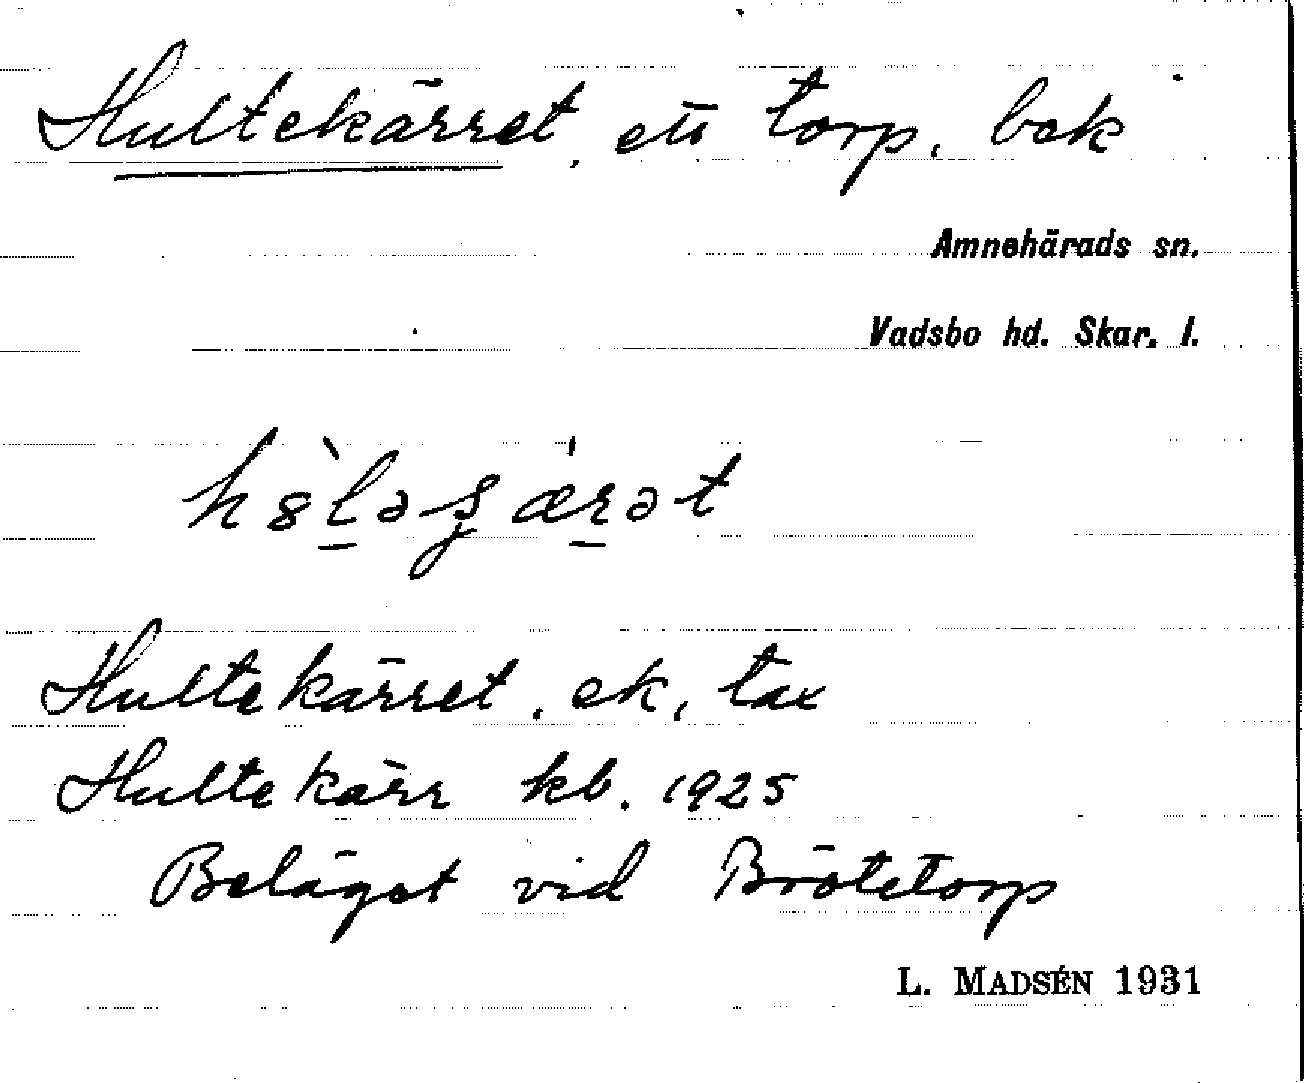 Hultekärret, ett torp, bek
Amnehärads sn.
Vadsbo hd. Skar. l.
Hultekärret, ek, tax
Hultekärr kb. 1925
Beläget vid Brötetorp
L. MADSÉN 1931